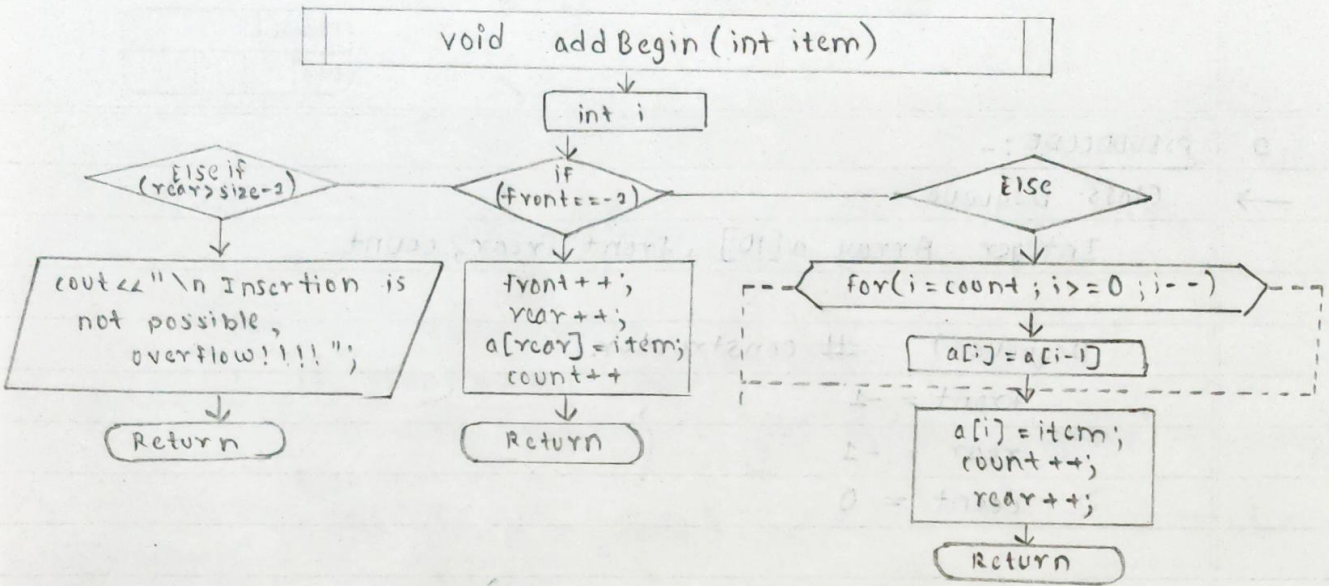 void addBegin(int item)
int i
Else if
(rear>size-1)
if
(front==-1)
Else
cout<<"\n Insertion is
not possible,
overflow!!!!";
Return
front++;
rear++;
a[rear]=item;
count++
Return
for(i=count;i>=0;i--)
a[i]=a[i-1]
a[i]=item;
count++;
rear++;
Return